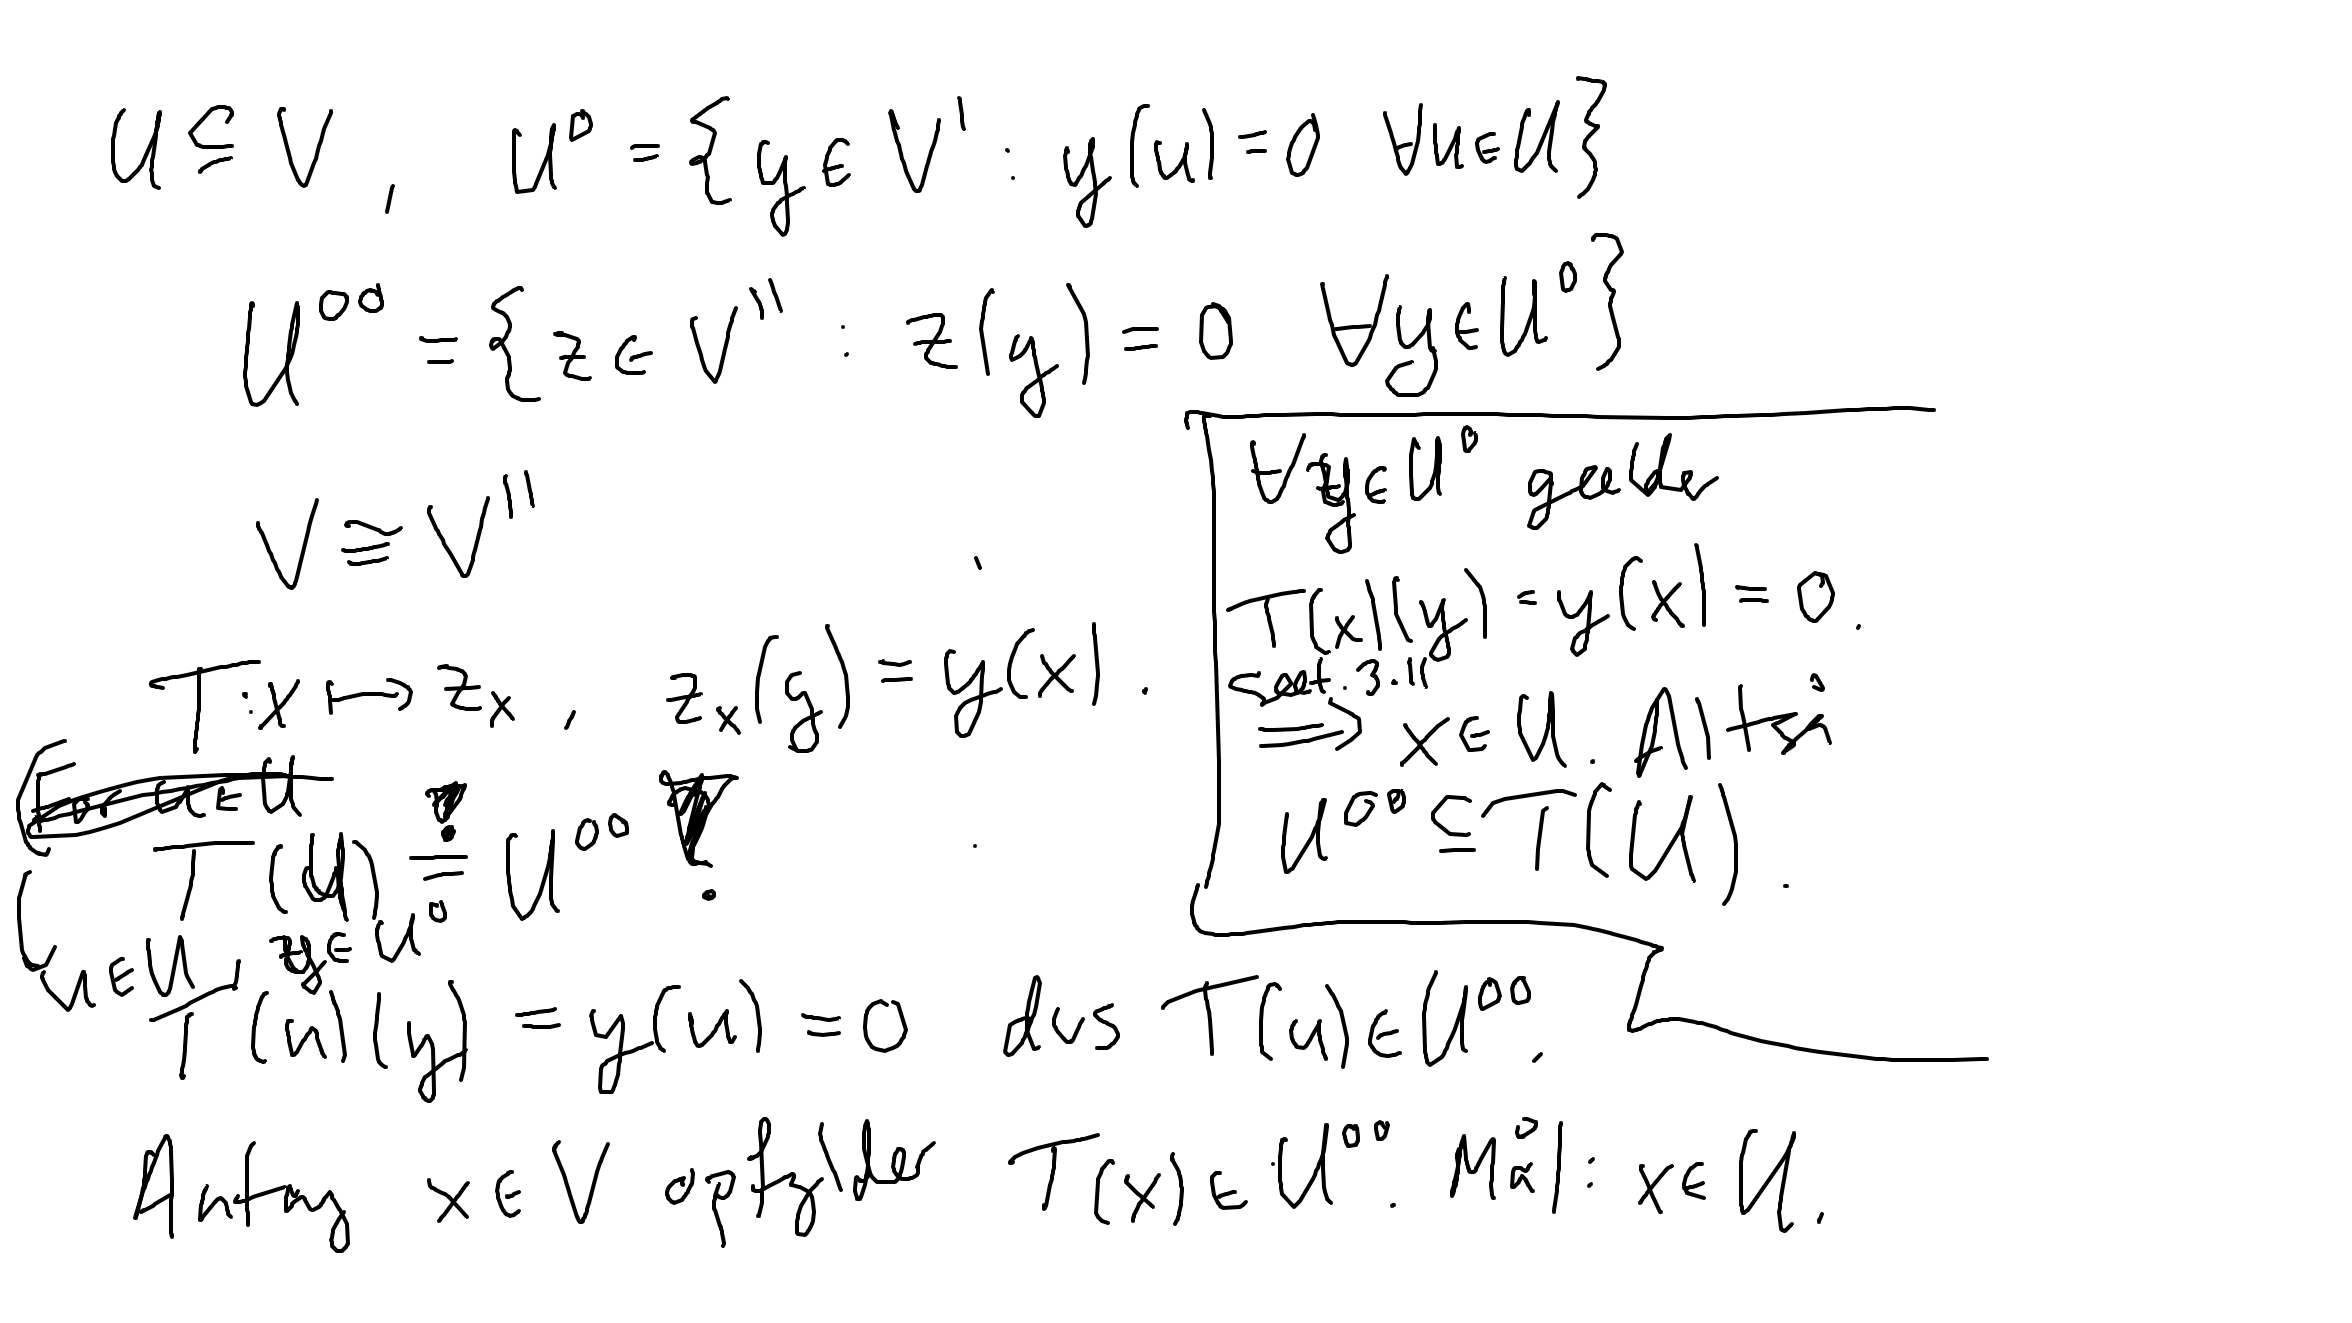 U ⊆ V , U⁰ = {y ∈ V' : y(u) = 0 ∀u ∈ U}
U⁰⁰ = {z ∈ V'' : z(y) = 0 ∀y ∈ U⁰}
V ≅ V''
T: x ↦ z_x , z_x(y) = y(x) .
T(U) = U⁰⁰
u ∈ U, y ∈ U⁰
T(u)(y) = y(u) = 0 dvs T(u) ∈ U⁰⁰.
Antag x ∈ V opfylder T(x) ∈ U⁰⁰. Mål: x ∈ U.
∀y ∈ U⁰ gælder
T(x)(y) = y(x) = 0.
sæt. 3.11
⟹ x ∈ U. Altså
U⁰⁰ ⊆ T(U).